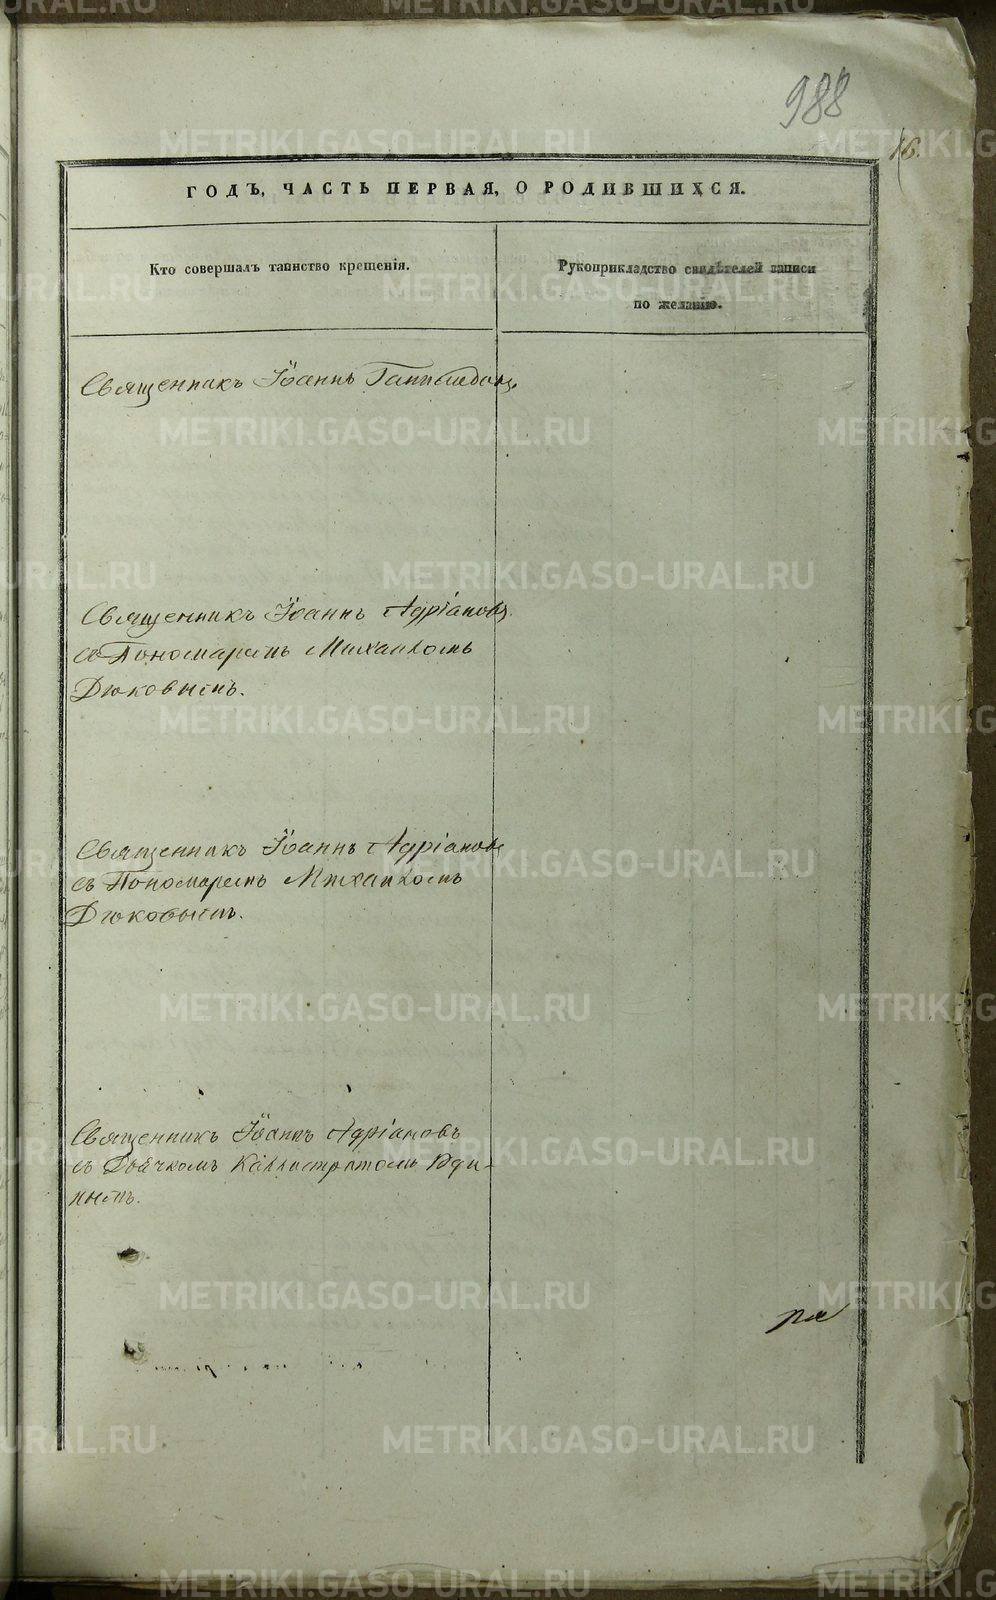 988
16.
ГОДЪ, ЧАСТЬ ПЕРВАЯ, О РОДИВШИХСЯ.
Кто совершалъ таинство крещенія.
Рукоприкладство свидѣтелей записи
по желанію.
Священникъ Іоаннъ
Священникъ Іоаннъ Адріановъ
съ Пономаремъ Михаиломъ
Дюковымъ.
Священникъ Іоаннъ Адріановъ
съ Пономаремъ Михаиломъ
Дюковымъ.
Священникъ Іоаннъ Адріановъ
съ Дьячкомъ Каллистратомъ Юди-
нымъ.
METRIKI.GASO-URAL.RU